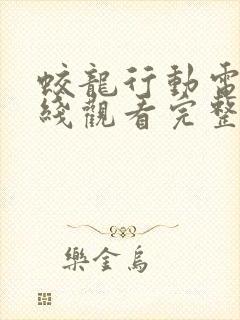 蛟龍行動電
綫觀看完整
樂金烏